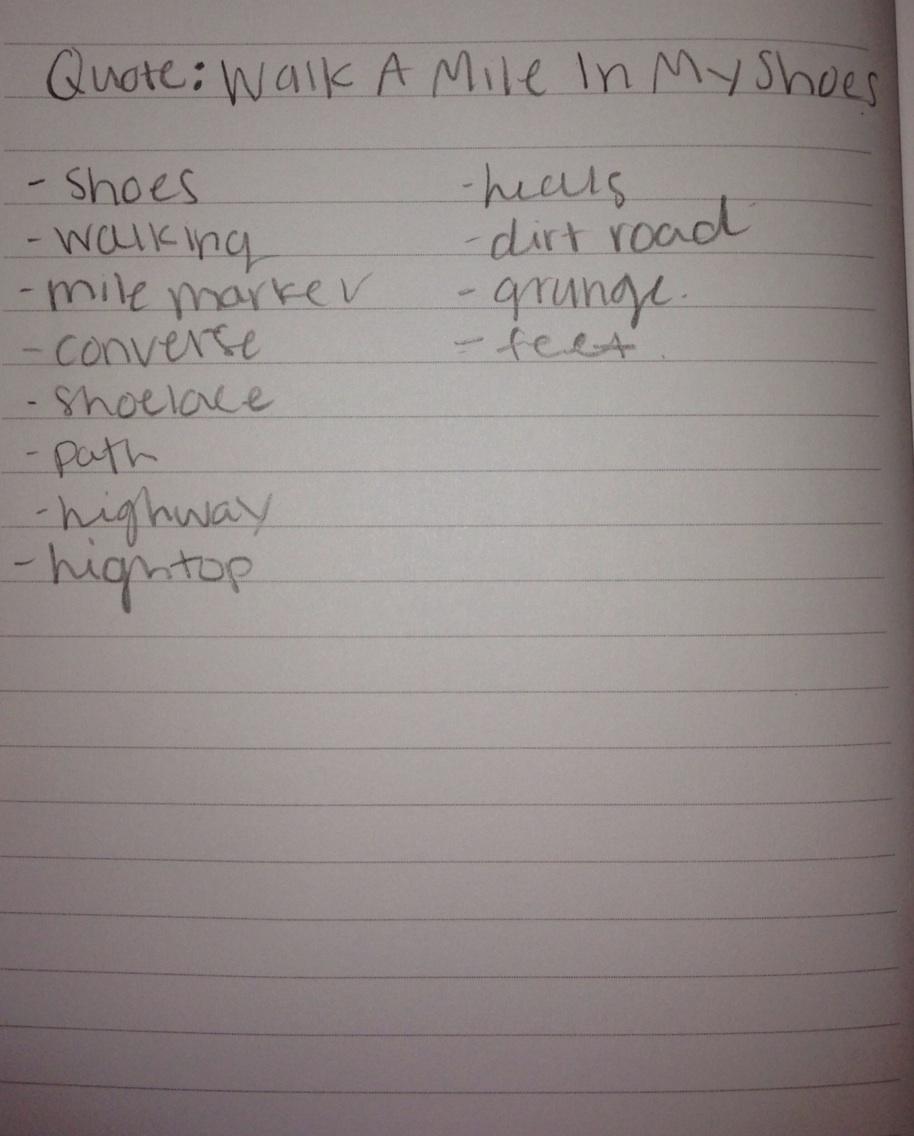 Quote: Walk A Mile In My Shoes
- shoes
- walking
- mile marker
- converse
- shoelace
- path
- highway
- hightop
- heels
- dirt road
- grunge.
- feet